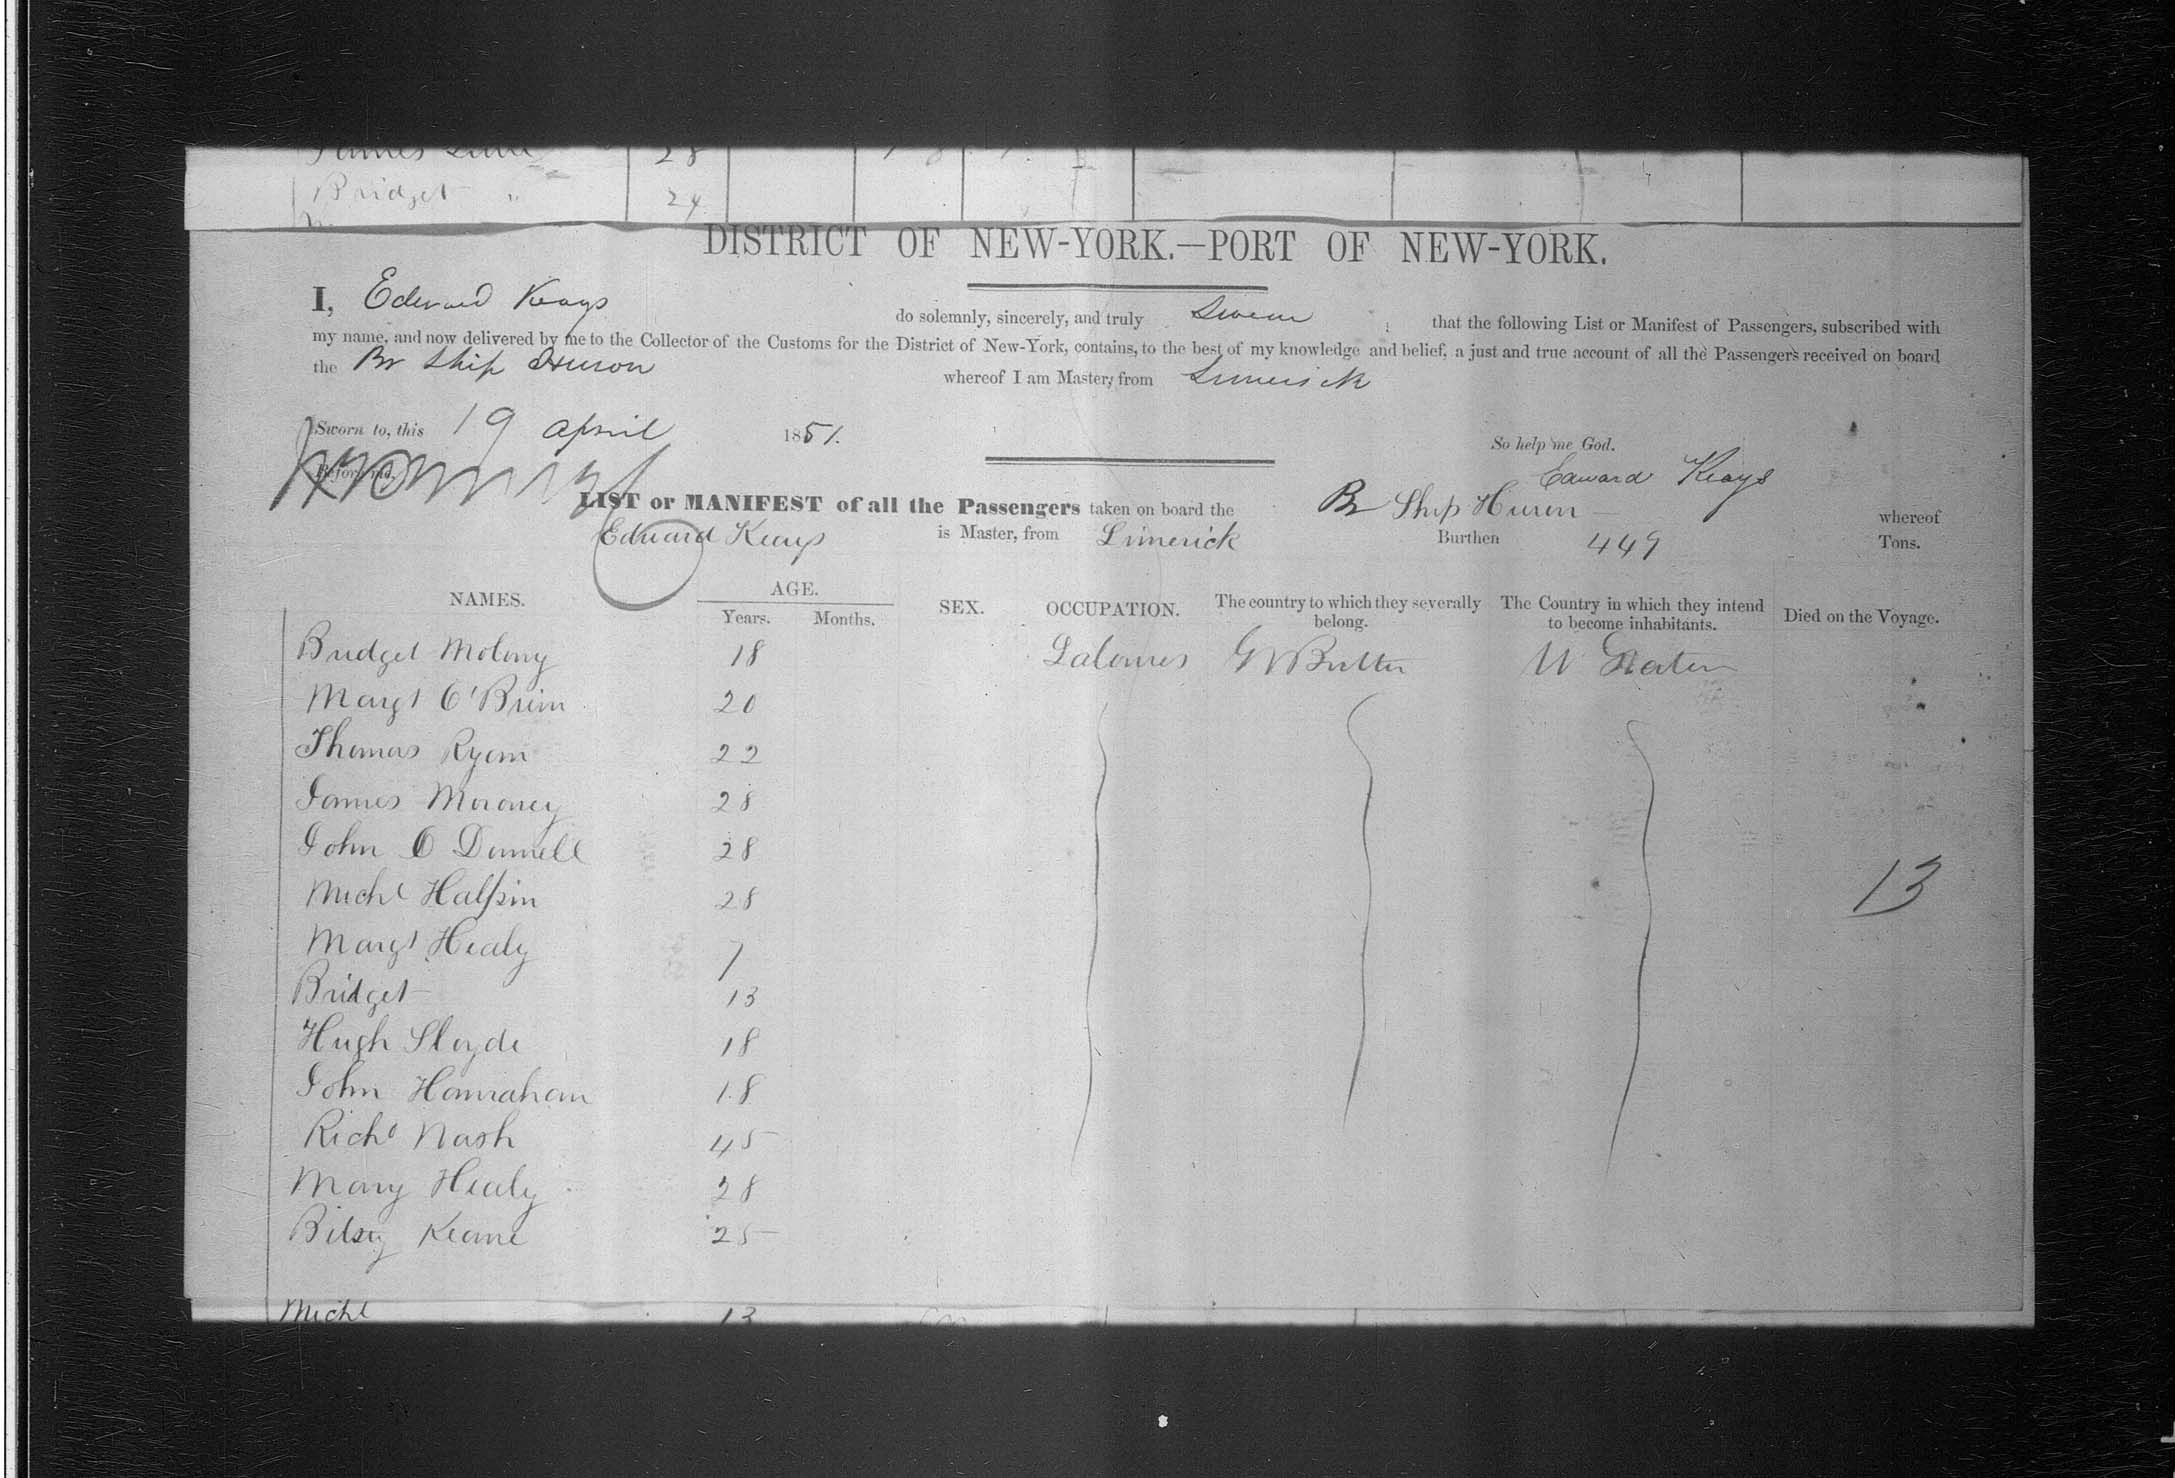 Bridget " 24
DISTRICT OF NEW-YORK.—PORT OF NEW-YORK.
I, Edward Keays do solemnly, sincerely, and truly Swear that the following List or Manifest of Passengers, subscribed with
my name, and now delivered by me to the Collector of the Customs for the District of New-York, contains, to the best of my knowledge and belief, a just and true account of all the Passengers received on board
the Br Ship Huron whereof I am Master, from Limerick
Sworn to, this 19 April 1851.
So help me God.
Before me,
Edward Keays
LIST or MANIFEST of all the Passengers taken on board the Br Ship Huron whereof
Edward Keays is Master, from Limerick Burthen 449 Tons.
NAMES. AGE. Years. Months. SEX. OCCUPATION. The country to which they severally belong. The Country in which they intend to become inhabitants. Died on the Voyage.
Bridget Molony 18 Labourers Gt Britn U States
Margt O'Brien 20
Thomas Ryan 22
James Moroney 28
John O Donnell 28
Michl Halpin 28
Margt Healy 7
Bridget 13
Hugh Sloyde 18
John Hanrahan 18
Richd Nash 45
Mary Healy 28
Bitsy Keane 25
13
Michl 13